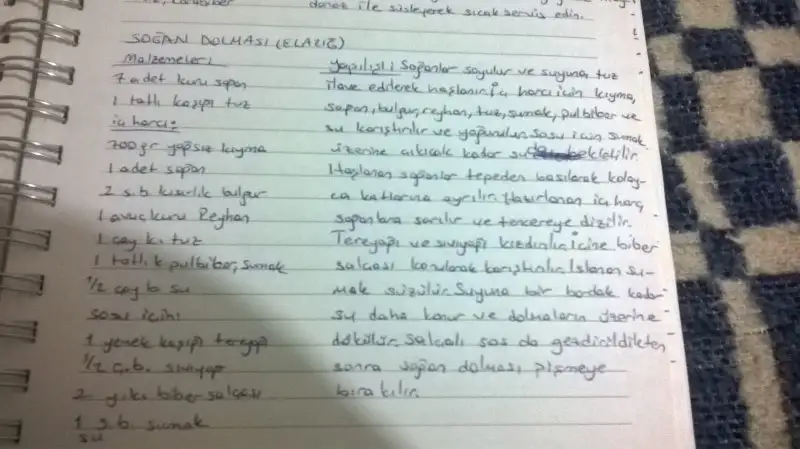 danak ile süsleyerek sıcak servis edin.
SOĞAN DOLMASI (ELAZIĞ)
Malzemeleri
7 adet kuru soğan
1 tatlı kaşığı tuz
iç harcı:
700 gr yağsız kıyma
1 adet soğan
2 s.b. kısırlık bulgur
1 avuç kuru Reyhan
1 çay k. tuz
1 tatlı k pulbiber, sumak
1/2 çay b su
sosu için:
1 yemek kaşığı tereyağı
1/2 ç.b. sıvıyağ
2 y.k. biber salçası
1 s.b. sumak
su
Yapılışı: Soğanlar soyulur ve suyuna, tuz
ilave edilerek haşlanır. İç harcı için kıyma,
soğan, bulgur, reyhan, tuz, sumak, pulbiber ve
su karıştırılır ve yoğurulur. Sosu için sumak
üzerine çıkıcak kadar su bekletilir.
Haşlanan soğanlar tepeden basılarak kolay-
ca katlarına ayrılır. Hazırlanan iç harç
soğanlara sarılır ve tencereye dizilir.
Tereyağı ve sıvıyağı kızdırılır, içine biber
salçası konularak karıştırılır. Islanan su-
mak süzülür. Suyuna bir bardak kadar
su daha konur ve dolmaların üzerine
dökülür. Salçalı sos da gezdirildikten
sonra soğan dolması pişmeye
bırakılır.